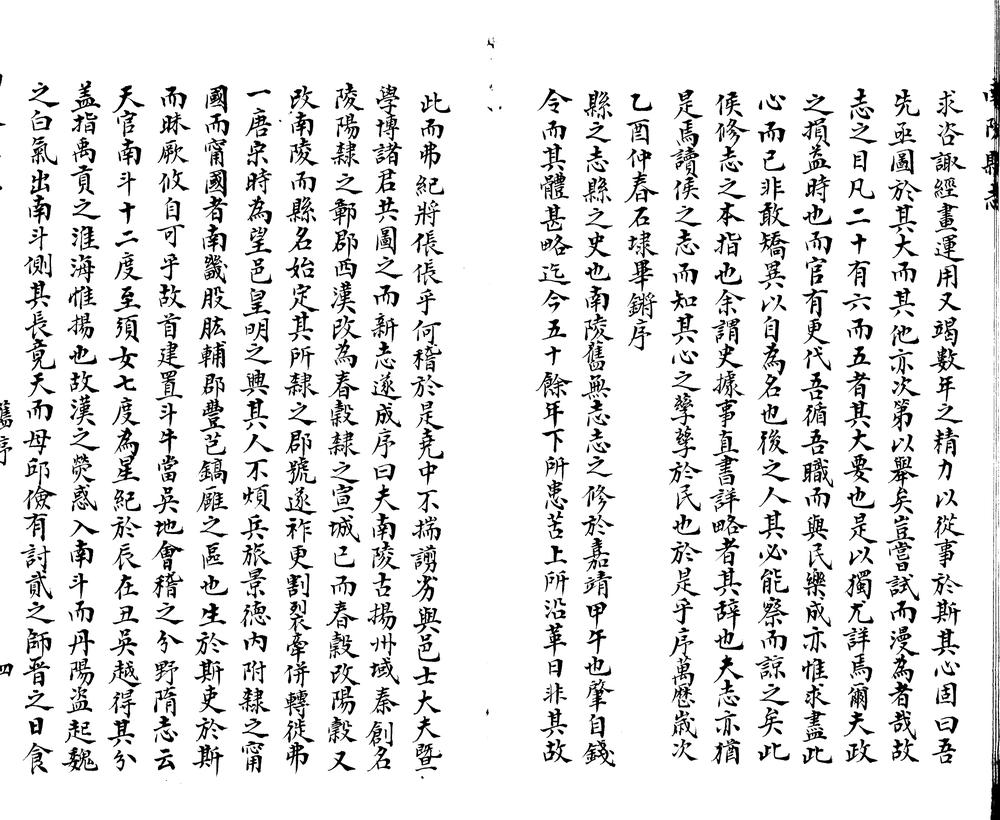 南陵縣志
求咨諏經畫運用又竭數年之精力以從事於斯其心固曰吾
先亟圖於其大而其他亦次第以舉矣豈嘗試而漫為者哉故
志之目凡二十有六而五者其大要也是以獨尤詳焉爾夫政
之損益時也而官有更代吾循吾職而與民樂成亦惟求盡此
心而已非敢矯異以自為名也後之人其必能察而諒之矣此
侯修志之本指也余謂史據事直書詳略者其辞也夫志亦猶
是焉讀侯之志而知其心之孳孳於民也於是乎序萬歷歲次
乙酉仲春石埭畢鏘序
縣之志縣之史也南陵舊無志志之修於嘉靖甲午也肇自錢
令而其體甚略迄今五十餘年下所患苦上所沿革日非其故
此而弗紀將倀倀乎何稽於是堯中不揣謭劣與邑士大夫暨
學博諸君共圖之而新志遂成序曰夫南陵古揚州域秦創名
陵陽隸之鄣郡西漢改為春穀隸之宣城已而春穀改陽穀又
改南陵而縣名始定其所隸之郡號遂祚更割裂牽併轉徙弗
一唐宋時為望邑皇明之興其人不煩兵旅景德內附隸之甯
國而甯國者南畿股肱輔郡豐芑鎬雝之區也生於斯吏於斯
而昧厥攸自可乎故首建置斗牛當吳地會稽之分野隋志云
天官南斗十二度至須女七度為星紀於辰在丑吳越得其分
盖指禹貢之淮海惟揚也故漢之熒惑入南斗而丹陽盜起魏
之白氣出南斗側其長竟天而毋邱儉有討貳之師晉之日食
舊序
四